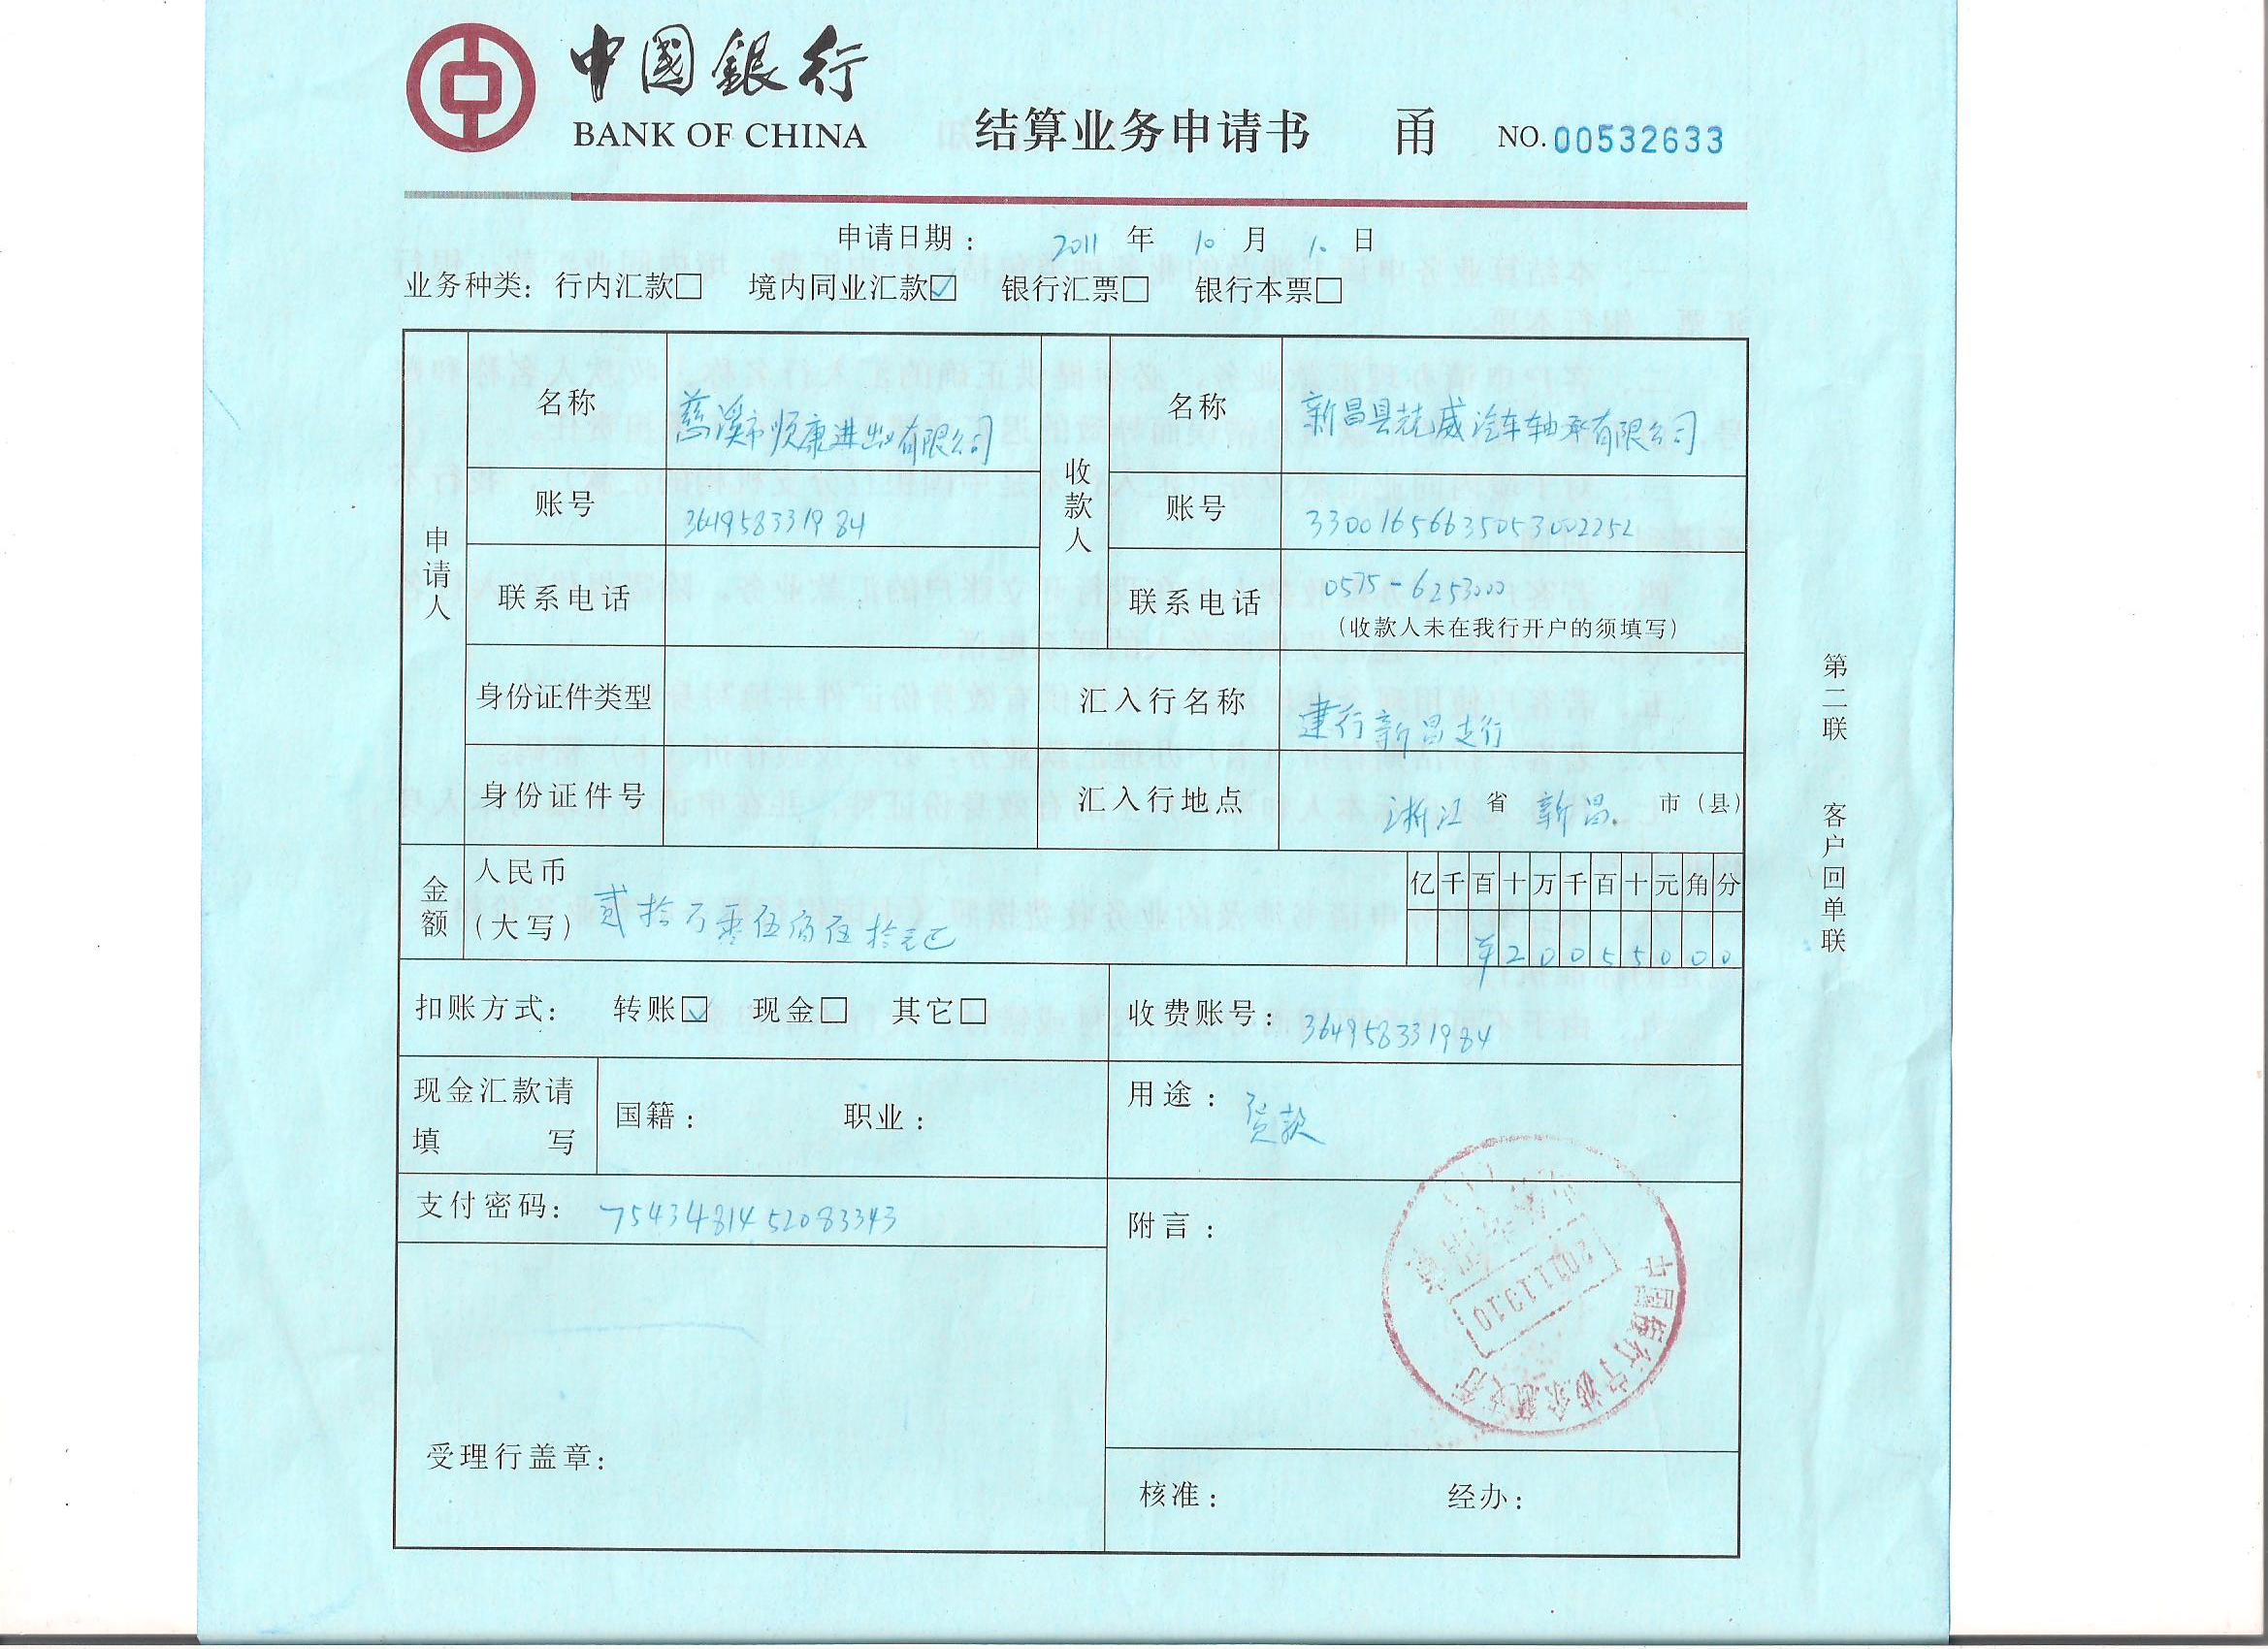 中國銀行
BANK OF CHINA
结算业务申请书 甬 NO.00532633
申请日期： 2011 年 10 月 10 日
业务种类：行内汇款□ 境内同业汇款☑ 银行汇票□ 银行本票□
申请人
名称 慈溪市顺康进出口有限公司
收款人
名称 新昌县兢威汽车轴承有限公司
账号 364958331984
账号 33001656635053002252
联系电话
联系电话 0575-6253000
（收款人未在我行开户的须填写）
身份证件类型
汇入行名称 建行新昌支行
身份证件号
汇入行地点 浙江 省 新昌 市（县）
金额
人民币
（大写） 贰拾万零伍佰伍拾元
亿千百十万千百十元角分
¥20055000
扣账方式： 转账☑ 现金□ 其它□
收费账号：364958331984
现金汇款请
填 写
国籍： 职业：
用途： 货款
支付密码： 7543481452083343
附言：
受理行盖章：
核准： 经办：
第二联 客户回单联
中国银行宁波余慈支行